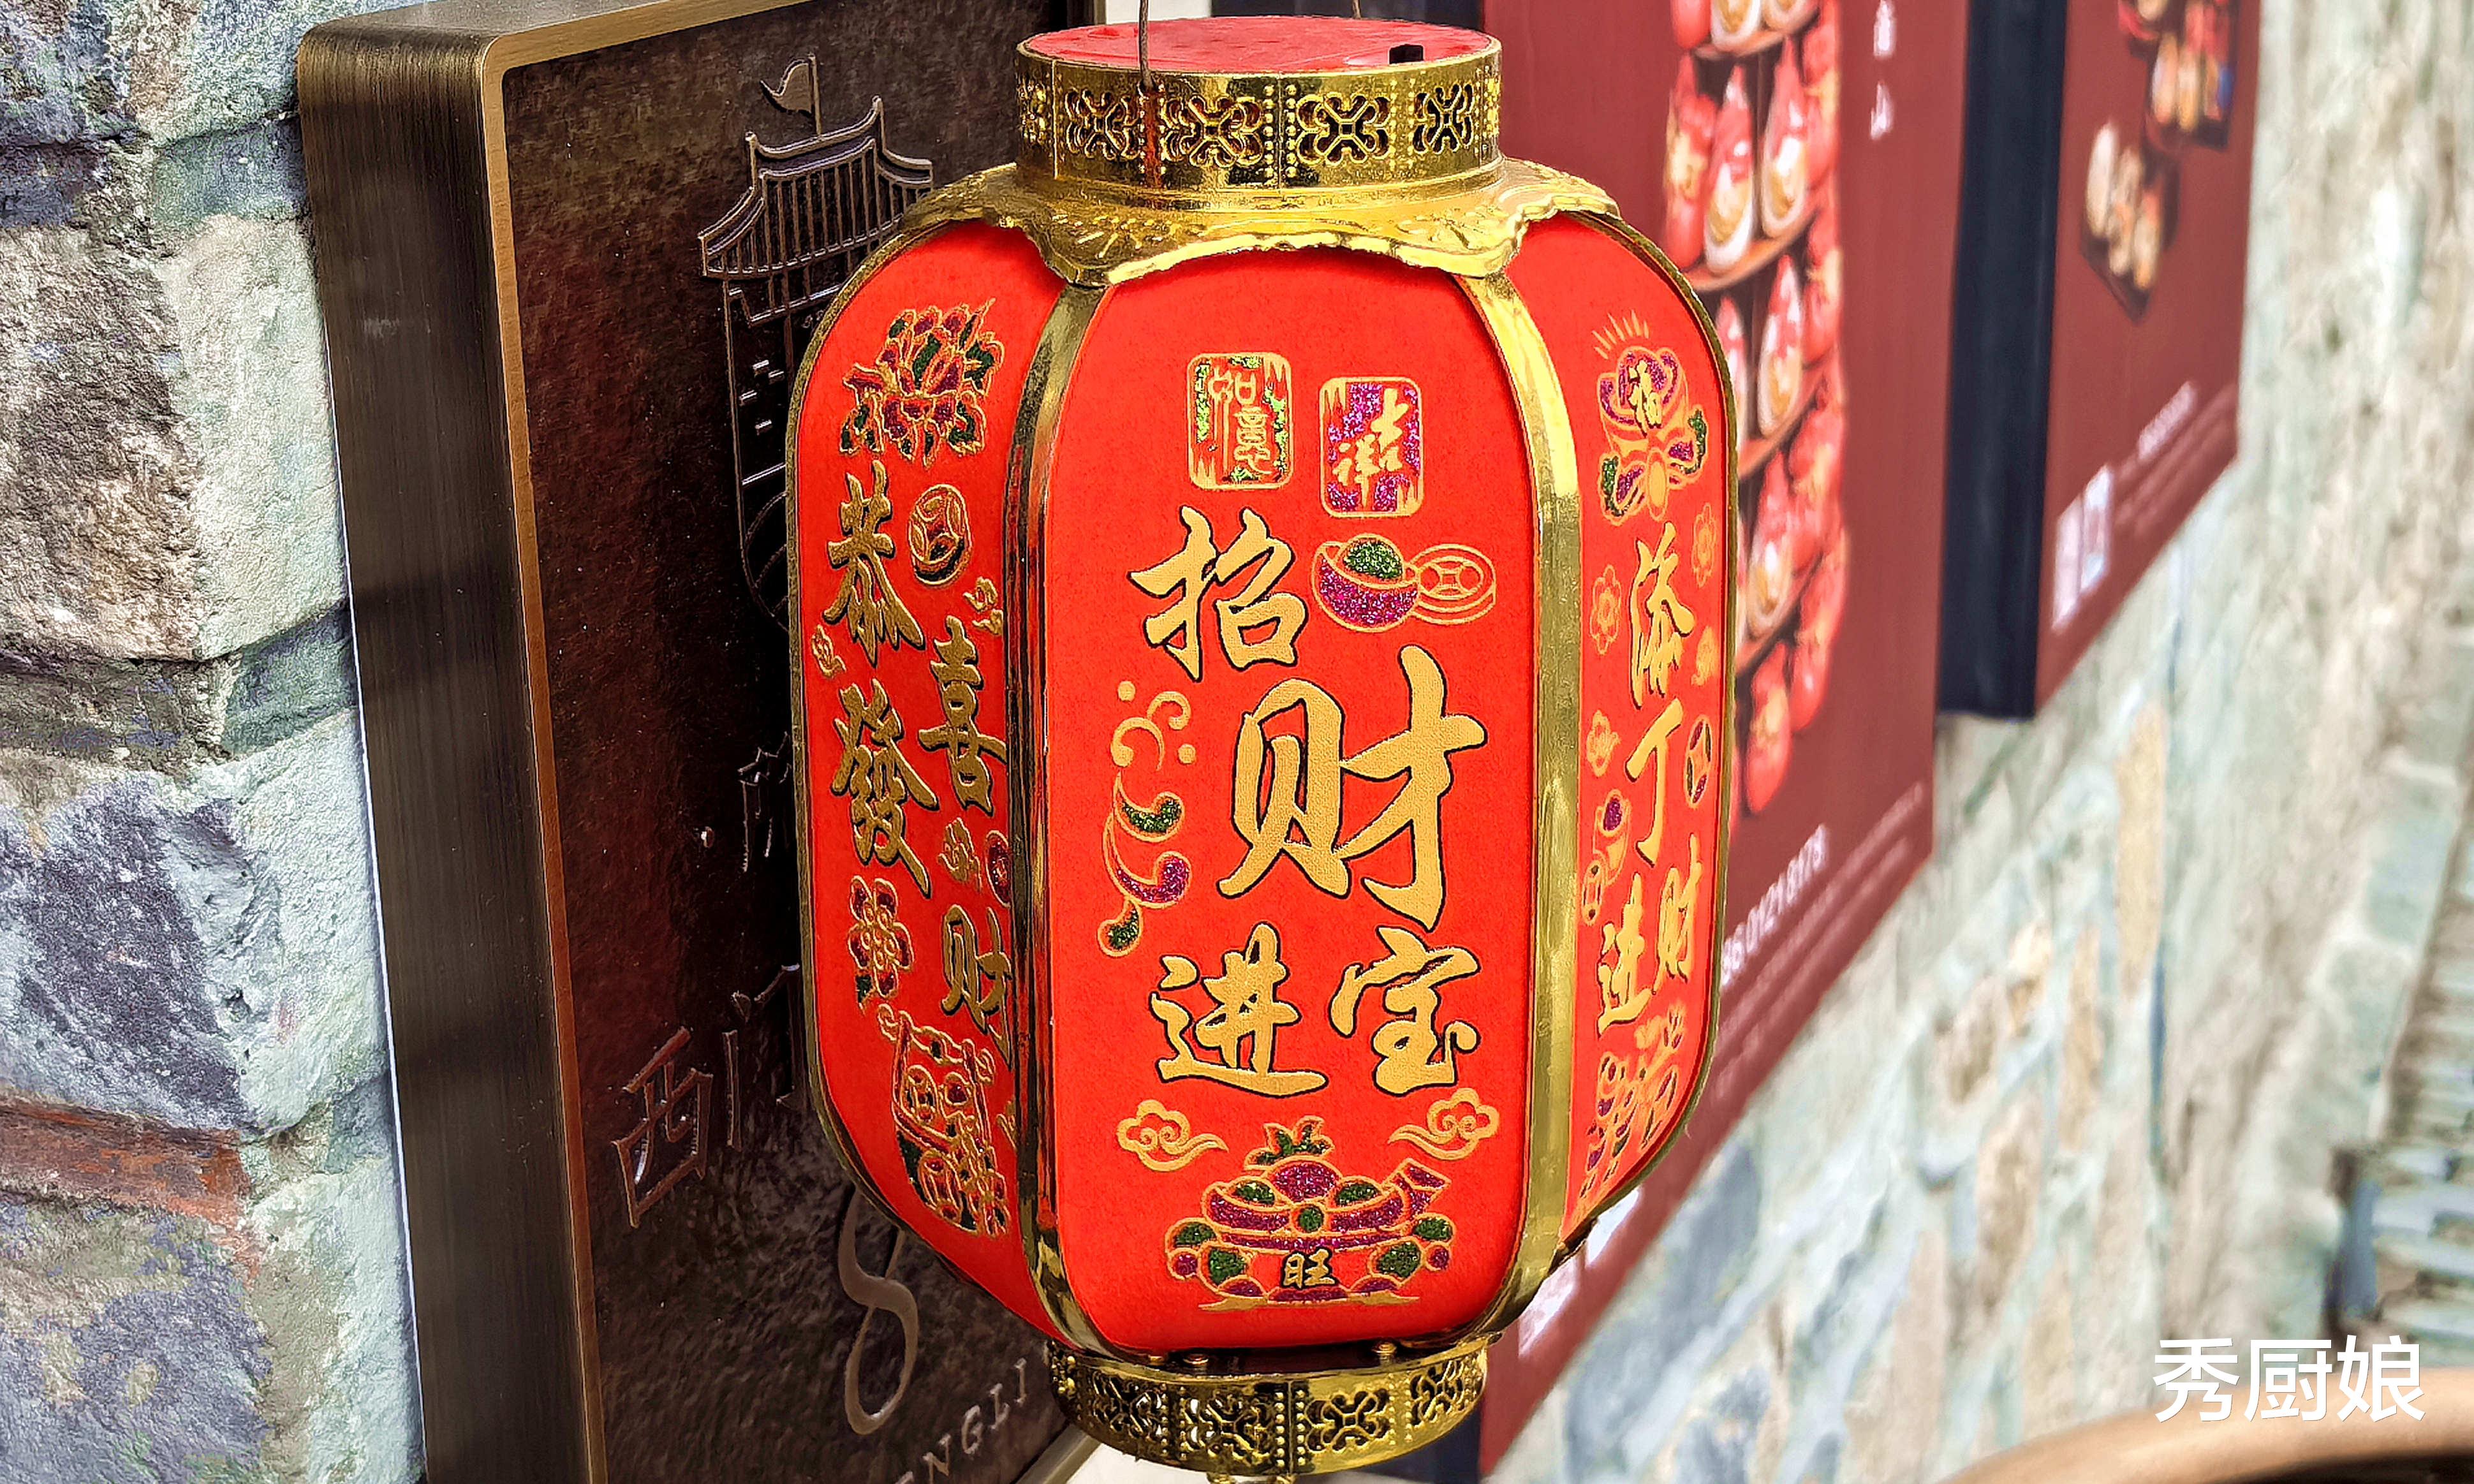 恭
喜
發
财
如意
吉祥
招
财
进
宝
旺
福
添
丁
进
财
西门
8
ENGLI
秀厨娘